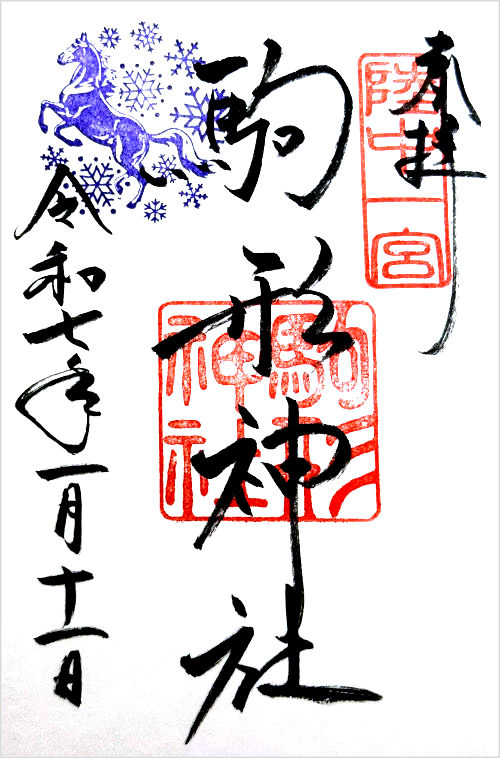 奉拝
陸中一宮
駒形神社
駒形神社
令和七年一月十一日